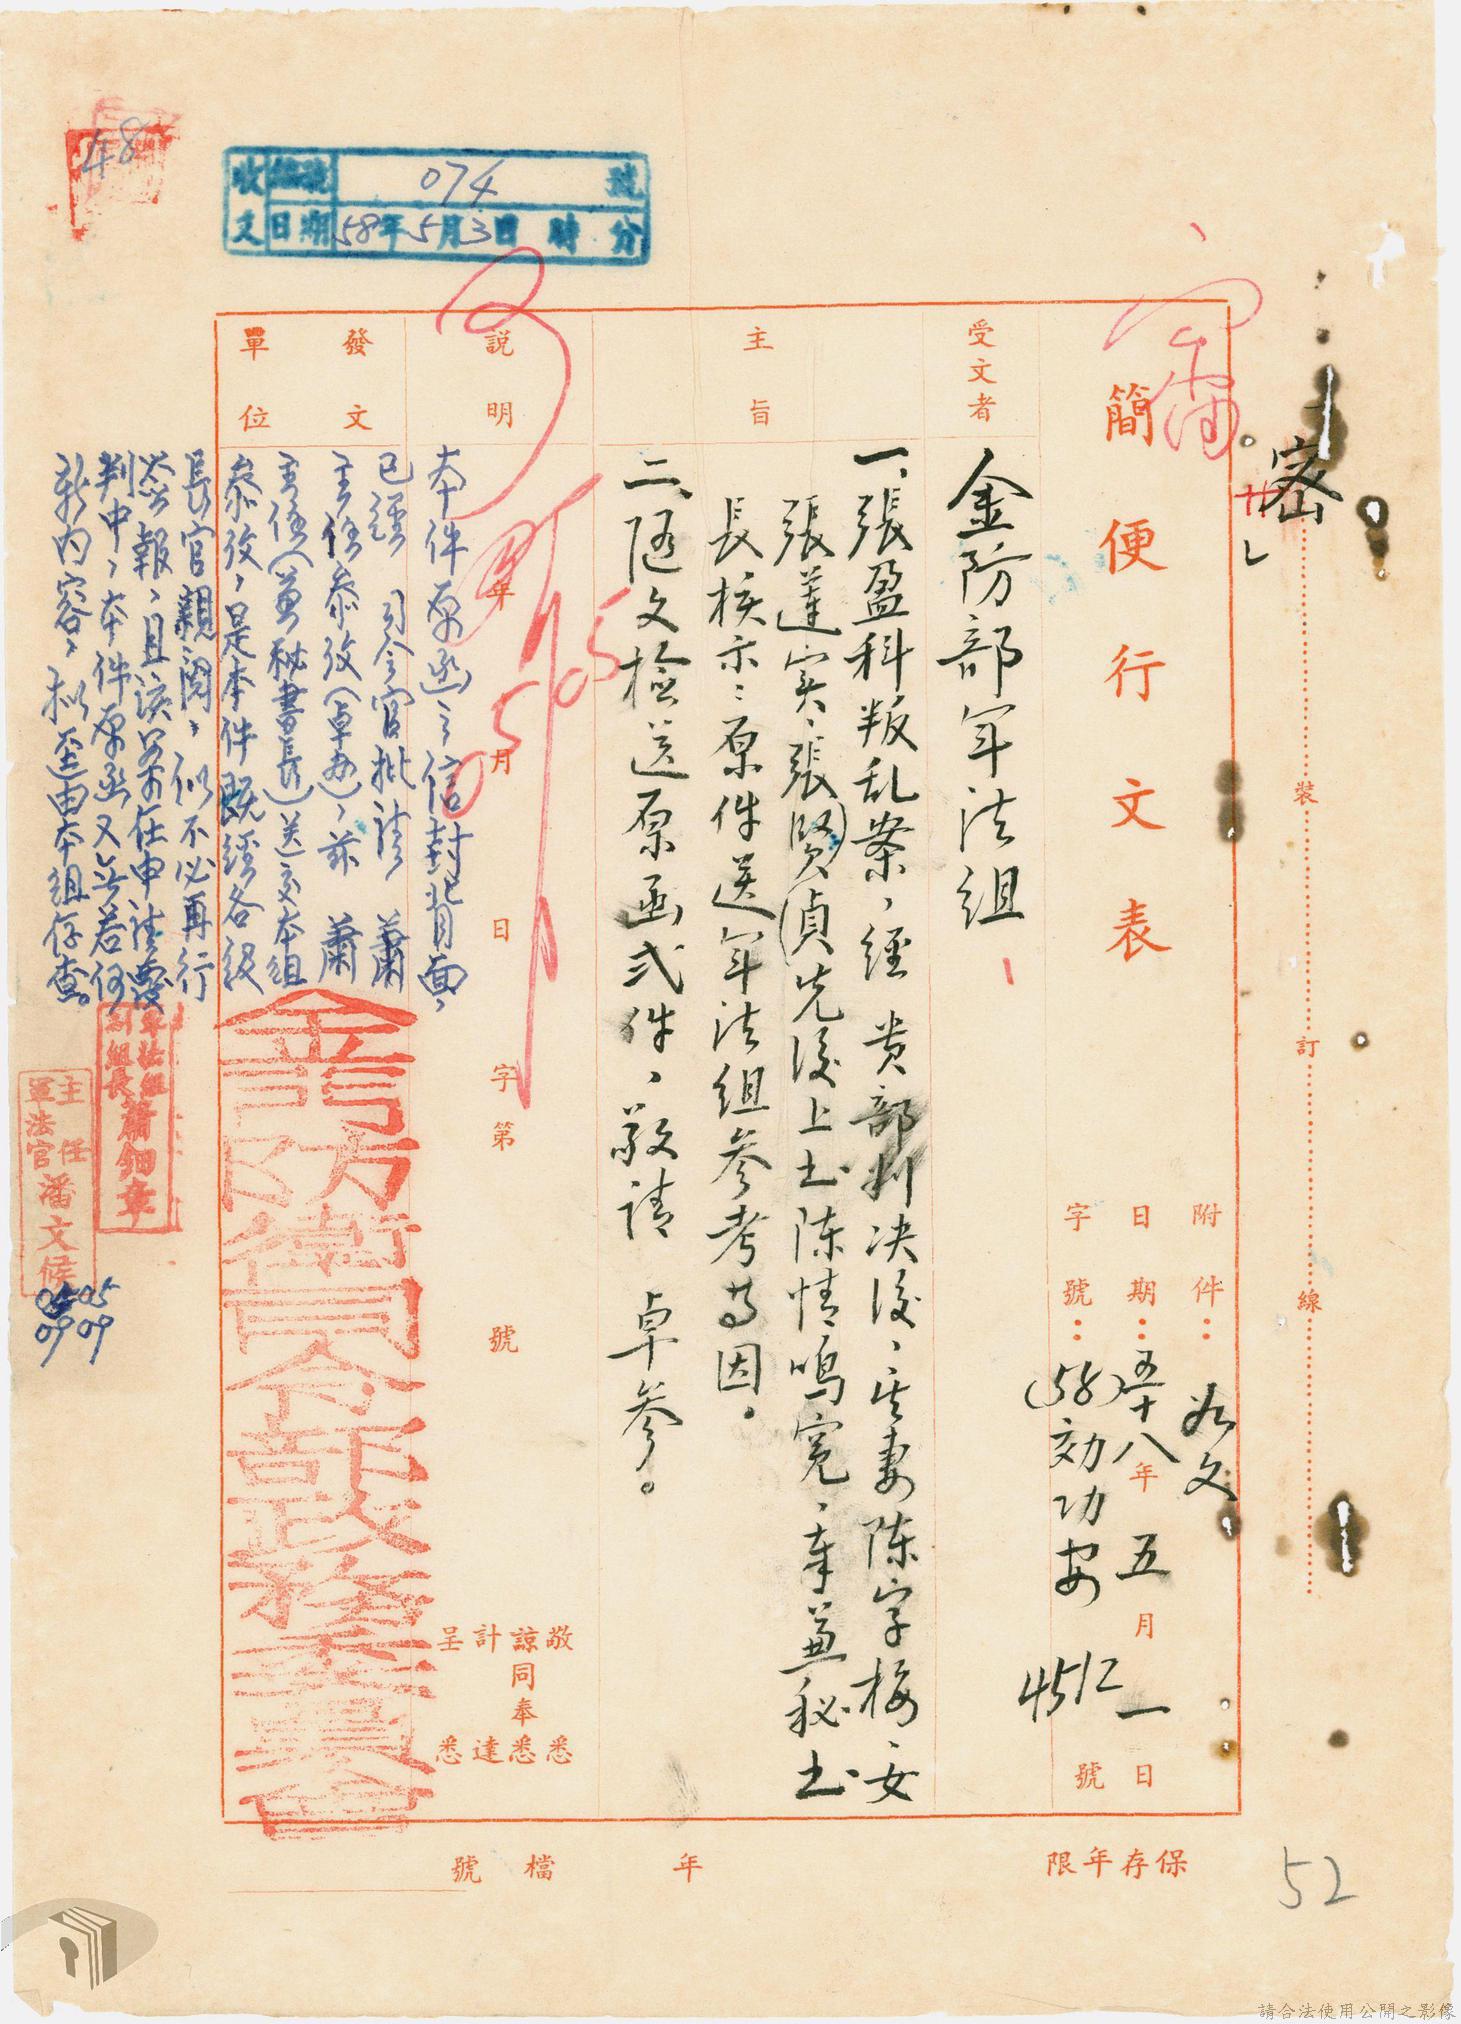 48
收文 編號 074 號
日期 58年5月3日 時 分
密
裝 訂 線
簡便行文表
附件：如文
日期：五十八年五月一日
字號：(58)効功安 4512 號
受文者
金防部軍法組
主旨
一、張盈科叛乱案，經 貴部判决後，其妻陈字梅、女
張蓮宾、張賢偵先後上书陈情鳴寃，辜兼秘书
長核示：原件送軍法組参考为因。
二、随文檢送原函弍件，敬請 卓參。
說明
年 月 日 字第 號
本件原函之信封背面，
已經 司令官批請 蕭
主任參攷（卓办），茲 蕭
主任（兼秘書長）送交本組
參攷，是本件既經各級
長官親閱，似不必再行
簽報，且該案本在申請覆
判中，本件原函又無若何
新內容，拟逕由本組存查。
發文單位
金門防衛司令部政務委員會
敬悉
諒同奉悉
計達
呈悉
軍法組副組長蕭鈿章
主任軍法官潘文候
0505
0909
保存年限 年 檔號
52
請合法使用公開之影像